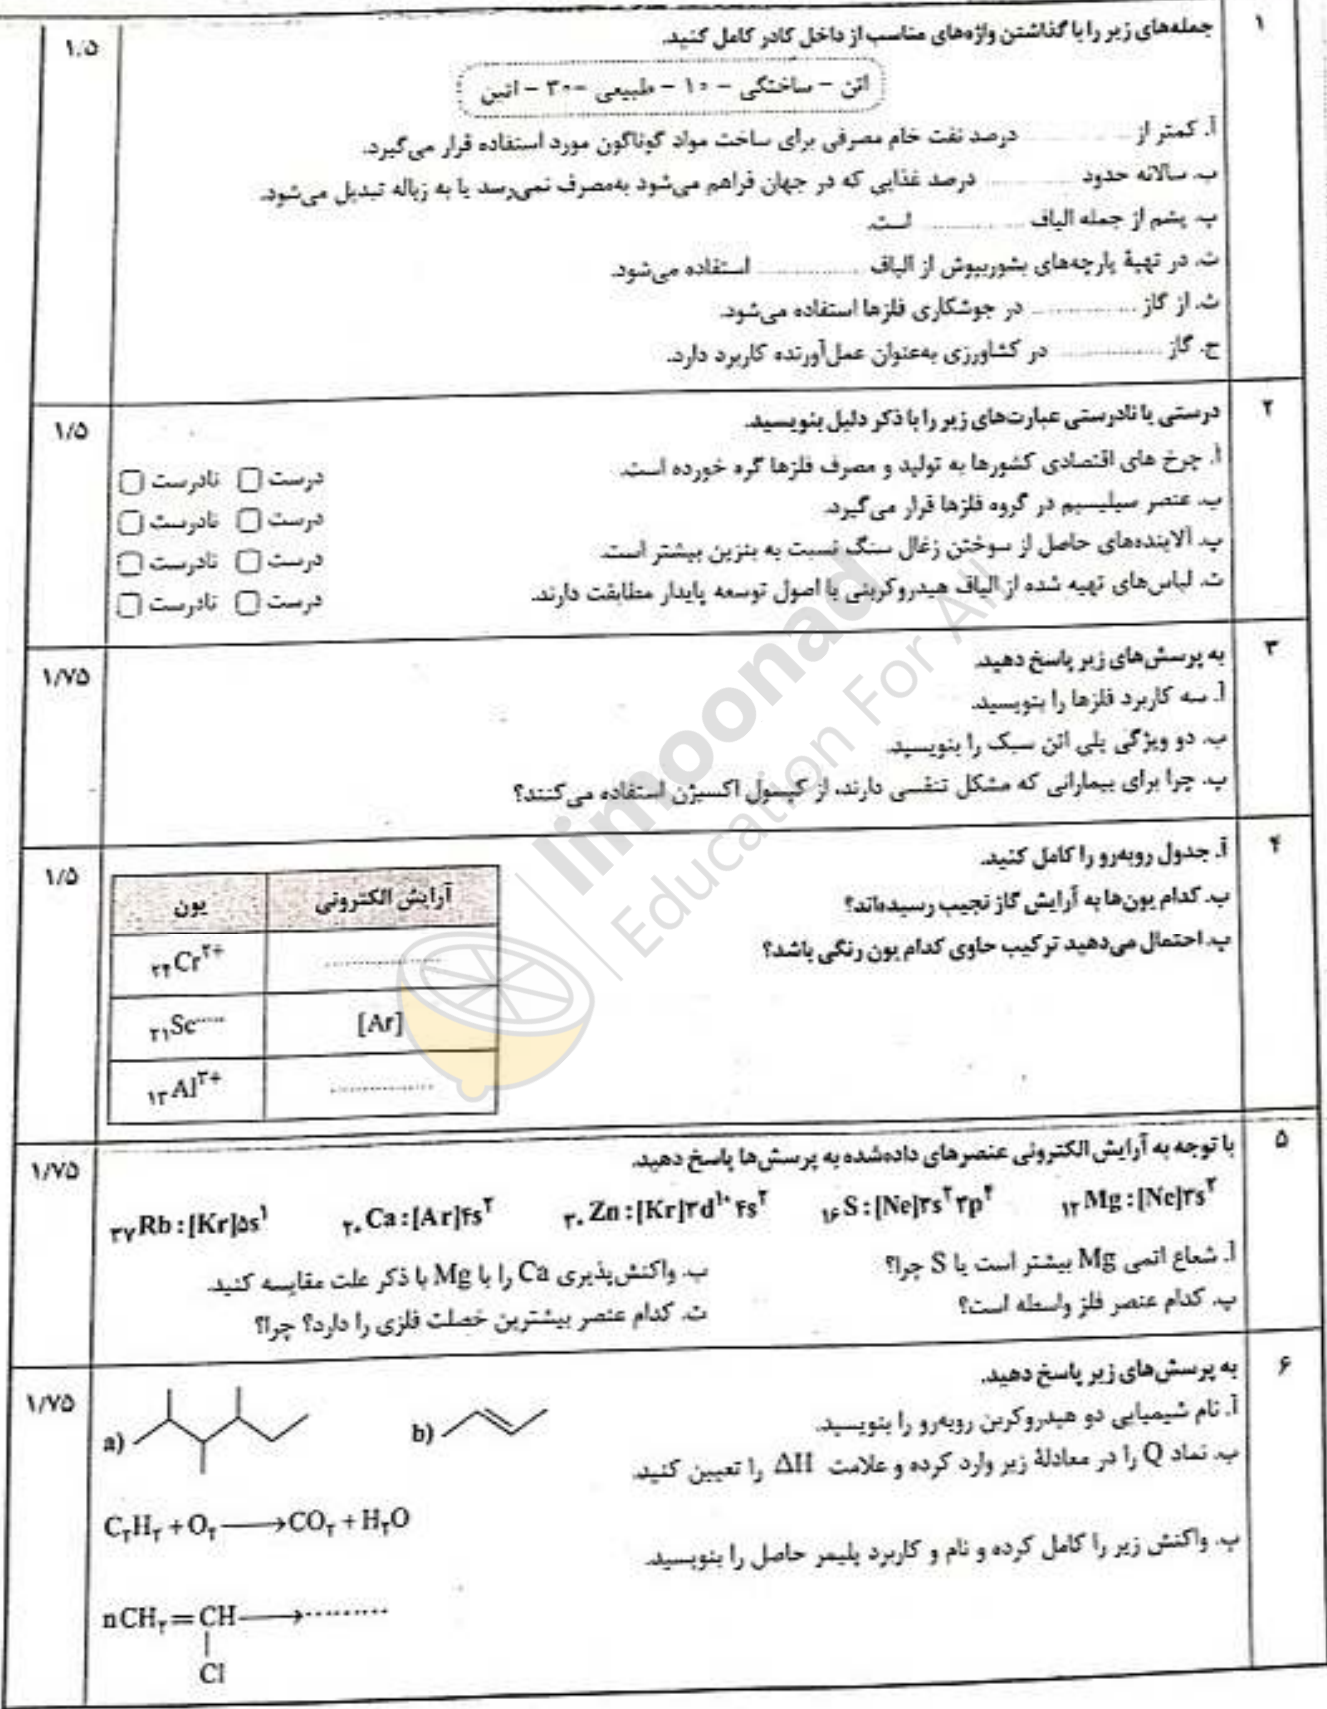 ۱
جمله‌های زیر را با گذاشتن واژه‌های مناسب از داخل کادر کامل کنید.
۱.۵
اتن – ساختگی – ۱۰ – طبیعی – ۳۰ – اتین
آ. کمتر از .............. درصد نفت خام مصرفی برای ساخت مواد گوناگون مورد استفاده قرار می‌گیرد.
ب. سالانه حدود .............. درصد غذایی که در جهان فراهم می‌شود به‌مصرف نمی‌رسد یا به زباله تبدیل می‌شود.
پ. پشم از جمله الیاف .............. است.
ت. در تهیهٔ پارچه‌های بشوربپوش از الیاف .............. استفاده می‌شود.
ث. از گاز .............. در جوشکاری فلزها استفاده می‌شود.
ج. گاز .............. در کشاورزی به‌عنوان عمل‌آورنده کاربرد دارد.
۲
درستی یا نادرستی عبارت‌های زیر را با ذکر دلیل بنویسید.
۱/۵
آ. چرخ های اقتصادی کشورها به تولید و مصرف فلزها گره خورده است. درست نادرست
ب. عنصر سیلیسیم در گروه فلزها قرار می‌گیرد. درست نادرست
پ. آلاینده‌های حاصل از سوختن زغال سنگ نسبت به بنزین بیشتر است. درست نادرست
ت. لباس‌های تهیه شده از الیاف هیدروکربنی با اصول توسعه پایدار مطابقت دارند. درست نادرست
۳
به پرسش‌های زیر پاسخ دهید.
۱/۷۵
آ. سه کاربرد فلزها را بنویسید.
ب. دو ویژگی پلی اتن سبک را بنویسید.
پ. چرا برای بیمارانی که مشکل تنفسی دارند، از کپسول اکسیژن استفاده می‌کنند؟
۴
آ. جدول روبه‌رو را کامل کنید.
۱/۵
ب. کدام یون‌ها به آرایش گاز نجیب رسیده‌اند؟
پ. احتمال می‌دهید ترکیب حاوی کدام یون رنگی باشد؟
آرایش الکترونی یون
.............. ₂₄Cr²⁺
[Ar] ₂₁Sc.....
.............. ₁₃Al³⁺
limoonad
Education For All
۵
با توجه به آرایش الکترونی عنصرهای داده‌شده به پرسش‌ها پاسخ دهید.
۱/۷۵
₁₂Mg:[Ne]۳s² ₁₆S:[Ne]۳s²۳p⁴ ₃₀Zn:[Kr]۳d¹⁰۴s² ₂₀Ca:[Ar]۴s² ₃₇Rb:[Kr]۵s¹
آ. شعاع اتمی Mg بیشتر است یا S چرا؟ ب. واکنش‌پذیری Ca را با Mg با ذکر علت مقایسه کنید.
پ. کدام عنصر فلز واسطه است؟ ت. کدام عنصر بیشترین خصلت فلزی را دارد؟ چرا؟
۶
به پرسش‌های زیر پاسخ دهید.
۱/۷۵
آ. نام شیمیایی دو هیدروکربن روبه‌رو را بنویسید.
a) b)
ب. نماد Q را در معادلهٔ زیر وارد کرده و علامت ΔH را تعیین کنید.
C₂H₂ + O₂ ⟶ CO₂ + H₂O
پ. واکنش زیر را کامل کرده و نام و کاربرد پلیمر حاصل را بنویسید.
nCH₂=CH ⟶ ..........
Cl